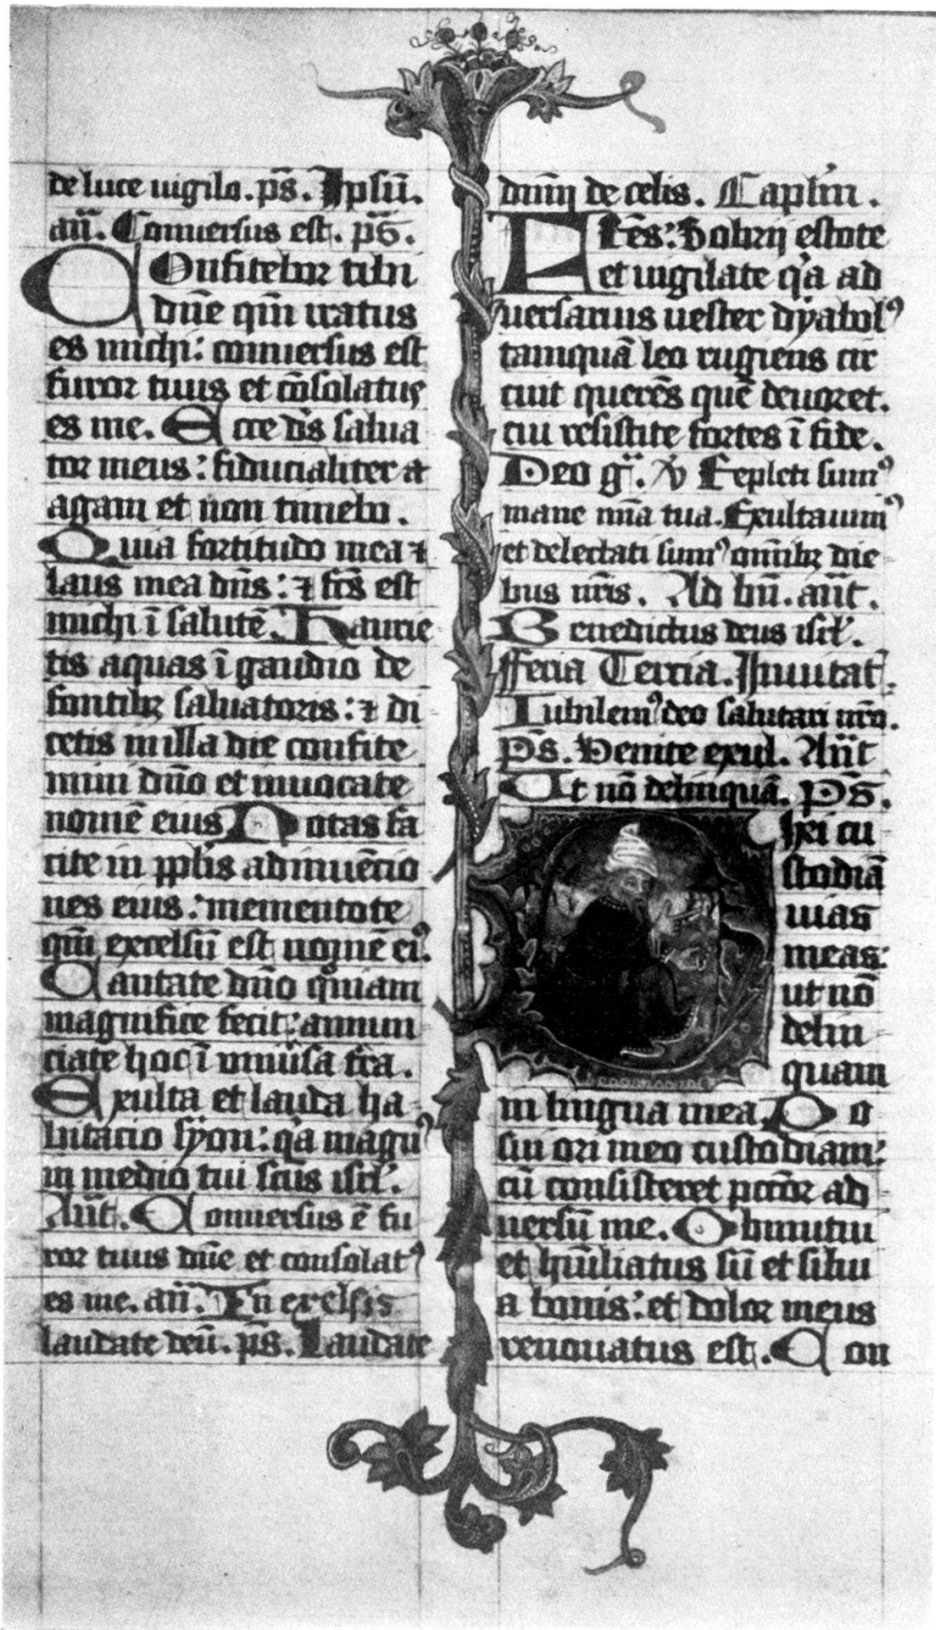 de luce uigilo. ps̄. Ip̄sū.
an̄. Conuersus est. ps̄.
Confitebor tibi
dn̄e qm̄ iratus
es michi: conuersus est
furor tuus et cōsolatus
es me. Ecce ds̄ salua
tor meus: fiducialiter a
agam et non timebo.
Quia fortitudo mea ⁊
laus mea dn̄s: ⁊ fcs̄ est
michi ī salutē. Haurie
tis aquas ī gaudio de
fontibꝫ saluatoris: ⁊ di
cetis in illa die confite
mini dn̄o et inuocate
nomē eius Notas fa
cite in ppl̄is adinuēcio
nes eius: mementote
qm̄ excelsū est nomē eiꝰ.
Cantate dn̄o quoniam
magnifice fecit: annun
ciate hoc ī uniūsa tr̄a.
Exulta et lauda ha
bitacio syon: qͥa magnꝰ
in medio tui scūs isrl̄.
Ant̄. Conuersus ē fu
ror tuus dn̄e et consolatꝰ
es me. an̄. In excelsis
laudate deū. ps̄. Laudate
dnm̄ de celis. Caplm̄.
Fr̄es: Sobrij estote
et uigilate qͥa ad
uersarius uester dyabolꝰ
tamquā leo rugiens cir
cuit querēs quē deuoret.
cui resistite fortes ī fide.
Deo gͬ. ℣ Repleti sumꝰ
mane mīa tua. Exultauimꝰ
et delectati sumꝰ om̄ibꝫ die
bus nr̄is. Ad bn̄. ant̄.
Benedictus deus isrl̄.
fferia Tercia. Inuitat̄.
Iubilemꝰ deo salutari nr̄o.
ps̄. Venite exul. Ant̄
Ut nō delinquā. ps̄.
Dixi cu
stodiā
uias
meas:
ut nō
delin
quam
in lingua mea. Po
sui ori meo custodiam:
cū consisteret pctōr ad
uersū me. Obmutui
et hūiliatus sū et silui
a bonis: et dolor meus
renouatus est. Con